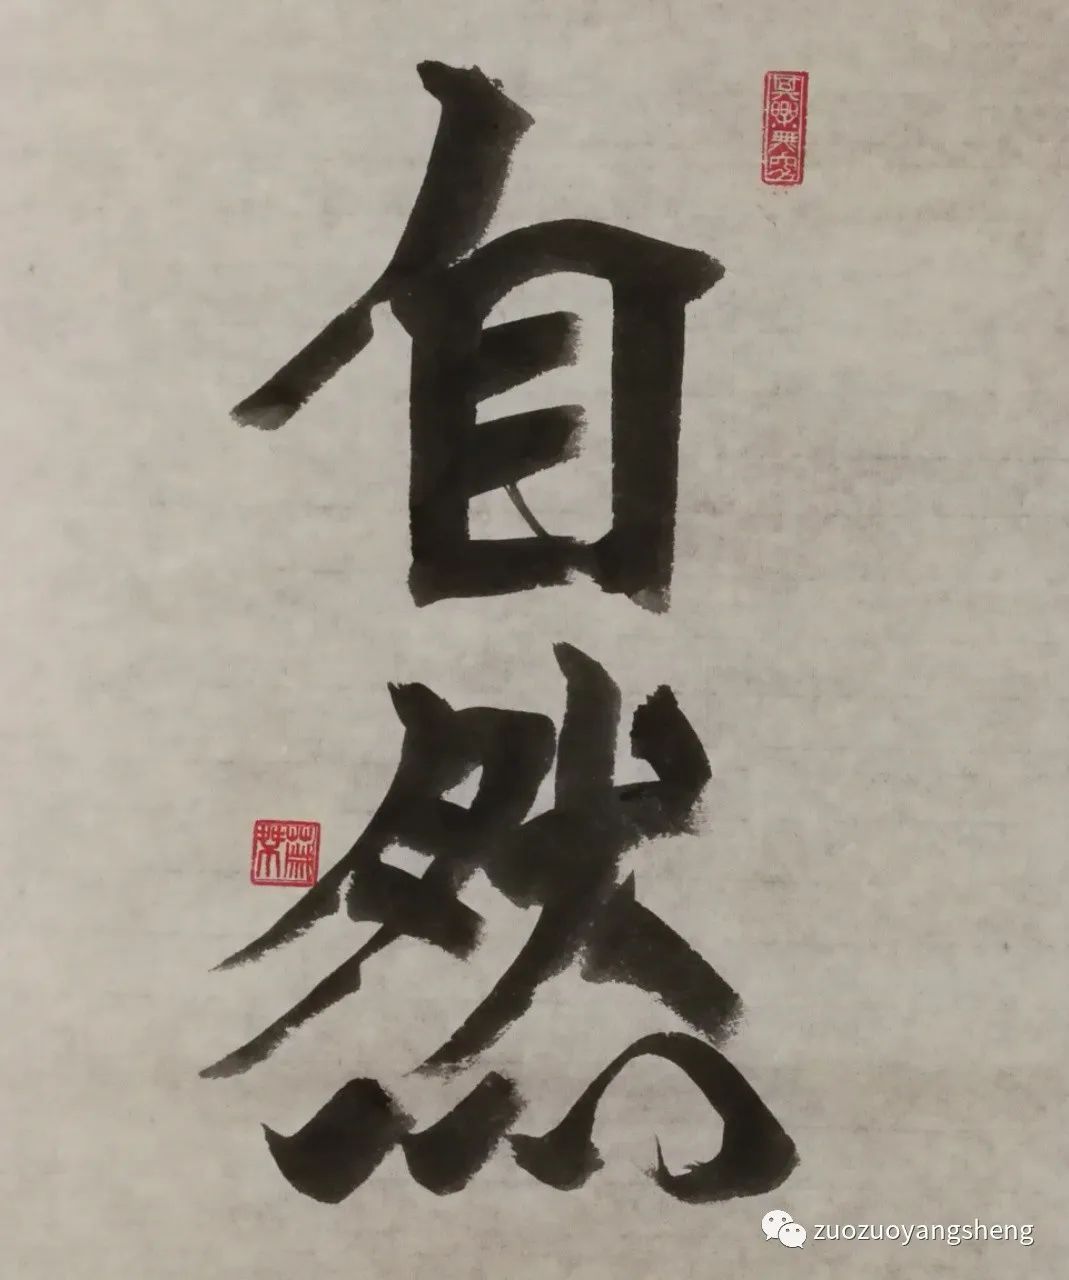 自然
zuozuoyangsheng